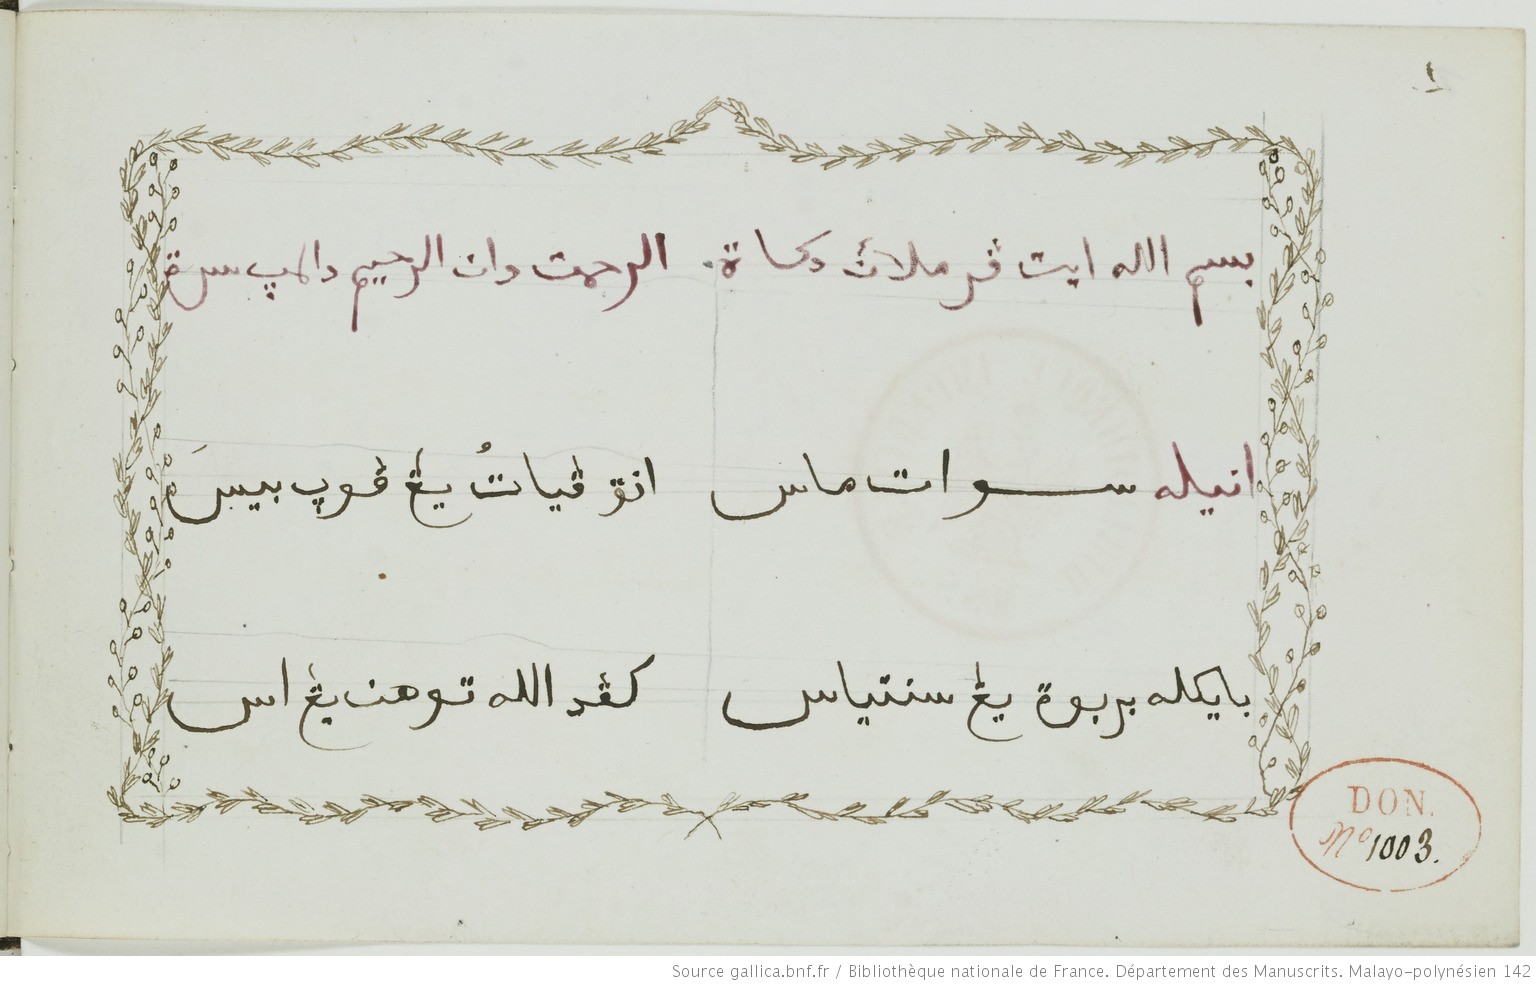 ١
بسم الله ايت ڤرملائن دکات . الرحمن دان الرحيم دالمڽ سرت
انيله سوات ماس انتو ڤنيات يڠ ڤوڽ بيس
بايکله بربوة يڠ سنتياس کڤد الله توهن يڠ اس
DON.
Nº 1003.
Source gallica.bnf.fr / Bibliothèque nationale de France. Département des Manuscrits. Malayo-polynésien 142